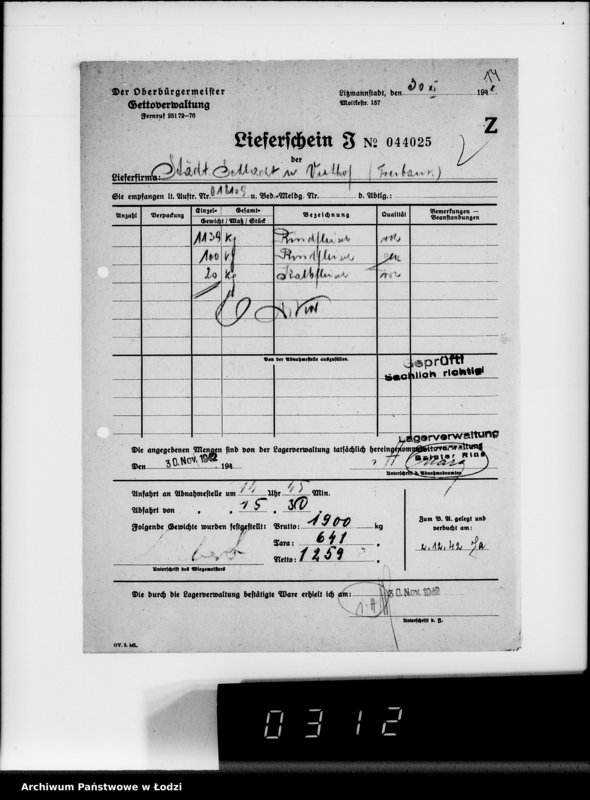 14
Der Oberbürgermeister
Gettoverwaltung
Fernruf 251 72-76
Litzmannstadt, den 30 XI 194 2
Moltkestr. 157
Z
Lieferschein J № 044025
der
Lieferfirma: Städt. Schlacht u Viehhof (Freibank)
Sie empfangen lt. Auftr. Nr. u. Bed.-Meldg. Nr. d. Abtlg.:
Anzahl Verpackung Einzel- Gesamt- Bezeichnung Qualität Bemerkungen — Beanstandungen
Gewicht / Maß / Stück
1139 kg Rindfleisch
100 kg Rindfleisch
20 kg Kalbfleisch
Von der Abnahmestelle auszufüllen.
Geprüft!
Sachlich richtig!
Lagerverwaltung
Die angegebenen Mengen sind von der Lagerverwaltung tatsächlich hereingenommen
Gettoverwaltung
Baluter Ring
Den 30. Nov. 1942 194
Unterschrift d. Abnahmebeamten
Anfahrt an Abnahmestelle um 14 Uhr 45 Min.
Abfahrt von " " 15 " 30 "
Folgende Gewichte wurden festgestellt: Brutto: 1900 kg
Tara: 641 "
Netto: 1259 "
Unterschrift des Wiegemeisters
Zum B. A. gelegt und
verbucht am:
2.12.42
Die durch die Lagerverwaltung bestätigte Ware erhielt ich am: 30. Nov. 1942
Unterschrift d. F.
GV. 5. ML.
0312
Archiwum Państwowe w Łodzi